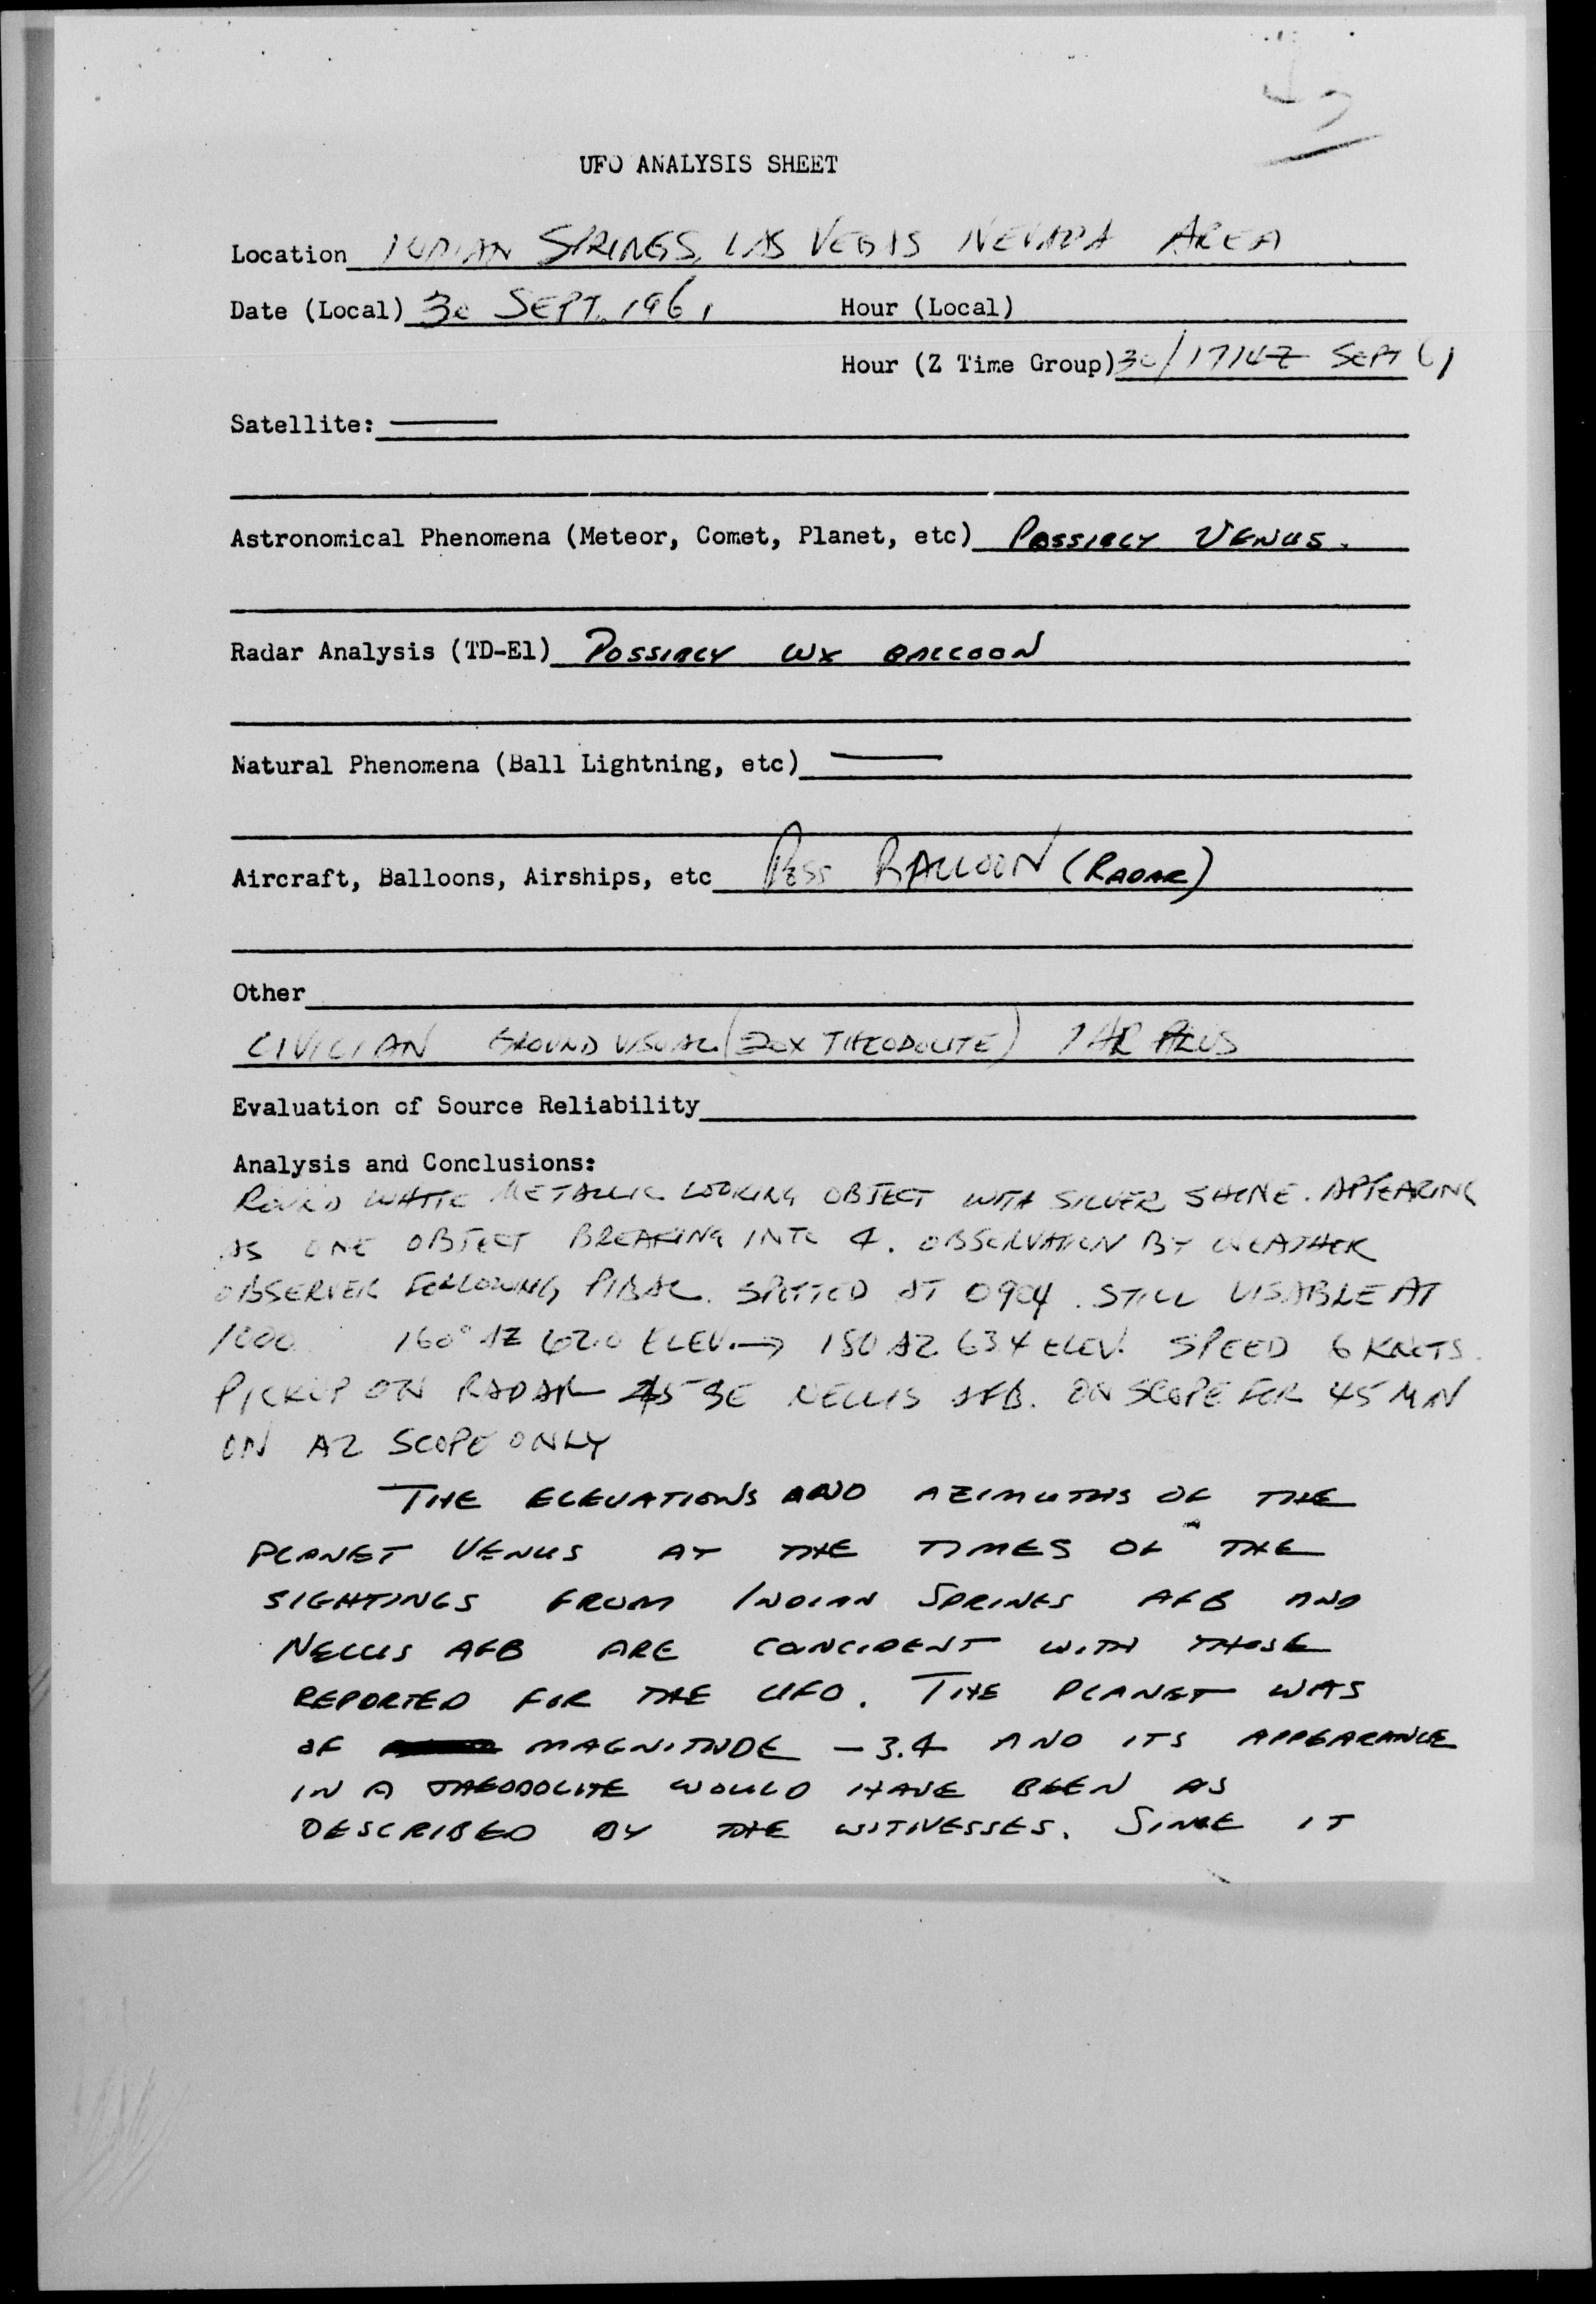 UFO ANALYSIS SHEET
Location INDIAN SPRINGS, LAS VEGAS NEVADA AREA
Date (Local) 30 SEPT. 1961 Hour (Local)
Hour (Z Time Group) 30/1714Z SEPT 61
Satellite: —
Astronomical Phenomena (Meteor, Comet, Planet, etc) POSSIBLY VENUS.
Radar Analysis (TD-E1) POSSIBLY WX BALLOON
Natural Phenomena (Ball Lightning, etc) —
Aircraft, Balloons, Airships, etc POSS BALLOON (RADAR)
Other
CIVILIAN GROUND VISUAL (20X THEODOLITE) 1 HR PLUS
Evaluation of Source Reliability
Analysis and Conclusions:
ROUND WHITE METALLIC LOOKING OBJECT WITH SILVER SHINE. APPEARING
AS ONE OBJECT BREAKING INTO 4. OBSERVATION BY WEATHER
OBSERVER FOLLOWING PIBAL. SPOTTED AT 0904. STILL VISABLE AT
1000. 160° AZ 62.0 ELEV. → 180 AZ 63.4 ELEV. SPEED 6 KNOTS.
PICKUP ON RADAR SE NELLIS AFB. ON SCOPE FOR 45 MIN
ON AZ SCOPE ONLY
THE ELEVATIONS AND AZIMUTHS OF THE
PLANET VENUS AT THE TIMES OF THE
SIGHTINGS FROM INDIAN SPRINGS AFB AND
NELLIS AFB ARE CONCIDENT WITH THOSE
REPORTED FOR THE UFO. THE PLANET WAS
OF MAGNITUDE -3.4 AND ITS APPEARANCE
IN A THEODOLITE WOULD HAVE BEEN AS
DESCRIBED BY THE WITNESSES. SINCE IT